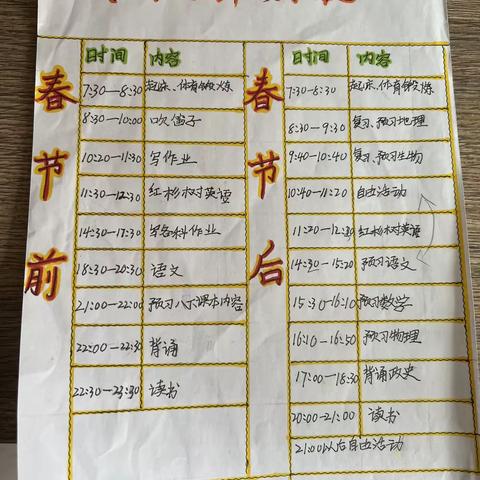 春节前
时间 内容
7:30—8:30 起床、体育锻炼
8:30—10:00 吹笛子
10:20—11:30 写作业
11:30—12:30 红杉树英语
14:30—17:30 写各科作业
18:30—20:30 语文
21:00—22:00 预习八下课本内容
22:00—22:30 背诵
22:30—23:30 读书
春节后
时间 内容
7:30—8:30 起床、体育锻炼
8:30—9:30 复习、预习地理
9:40—10:40 复习、预习生物
10:40—11:20 自由活动
11:20—12:30 红杉树英语
14:30—15:20 预习语文
15:30—16:10 预习数学
16:10—16:50 预习物理
17:00—18:30 背诵政史
20:00—21:00 读书
21:00以后自由活动